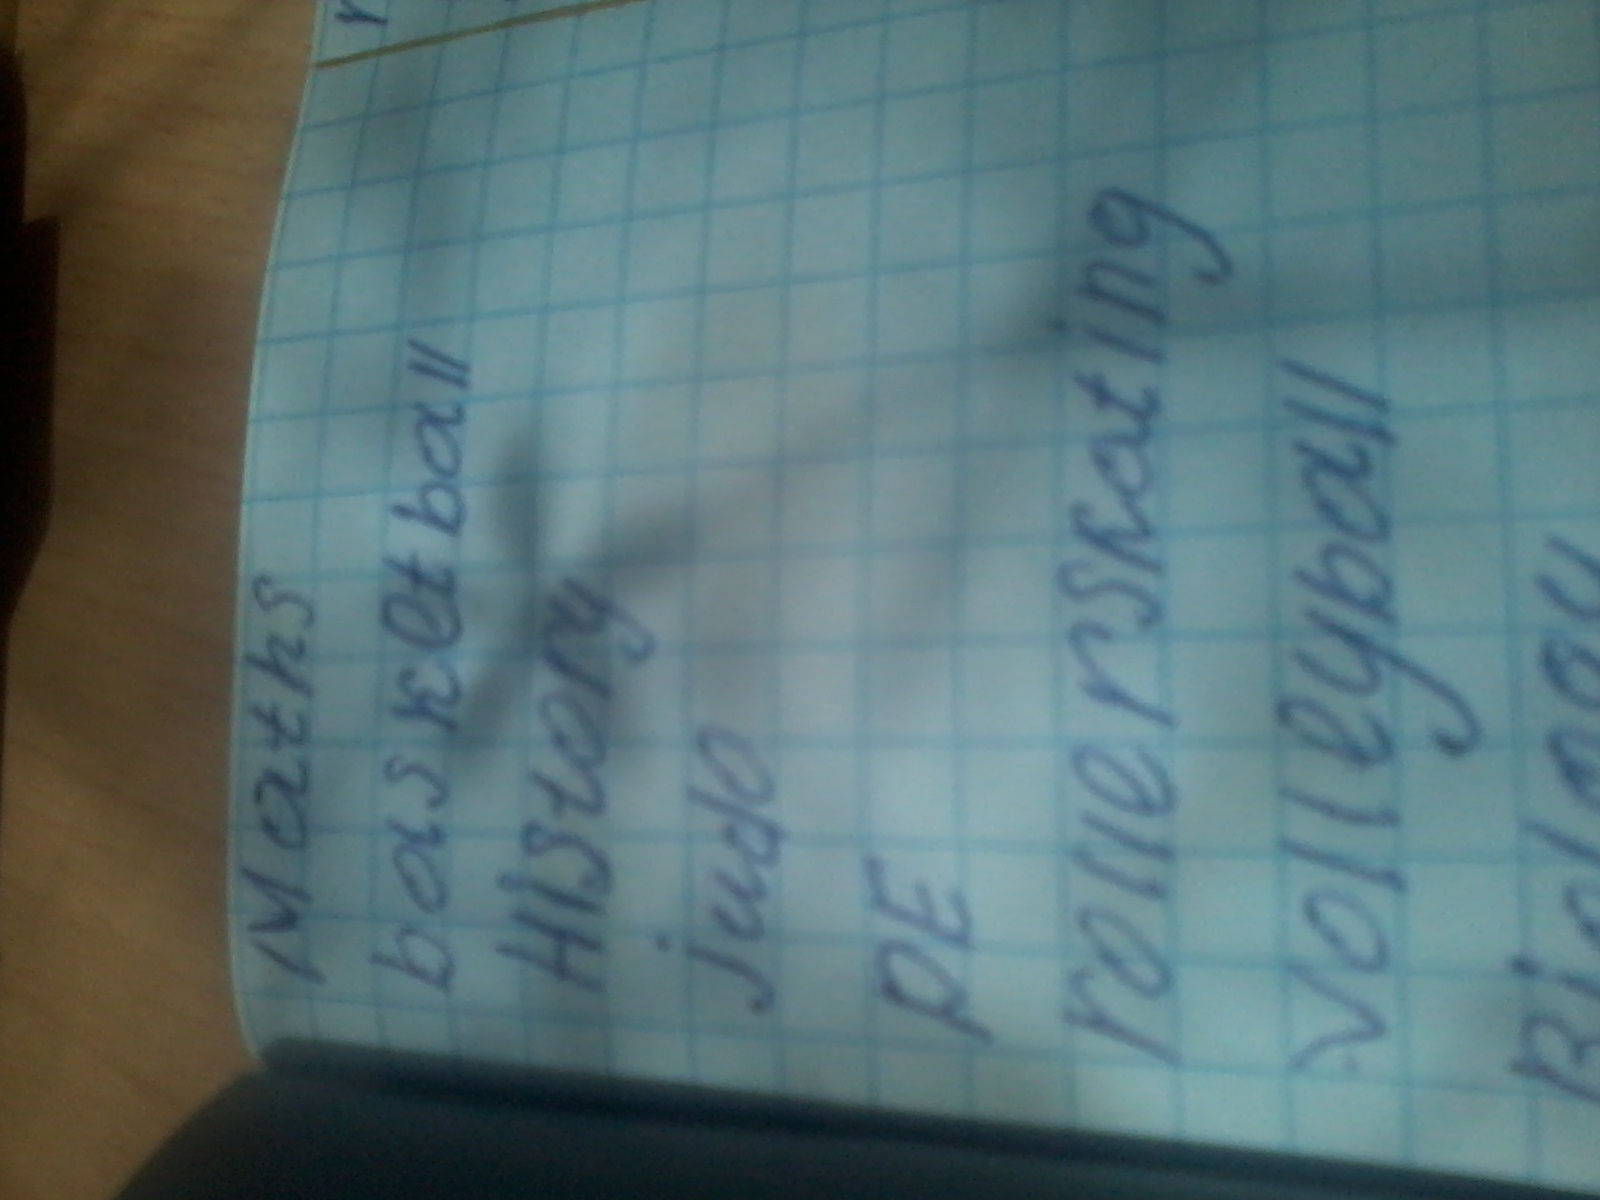 Maths
basketball
History
judo
PE
rollerskating
volleyball
Biology